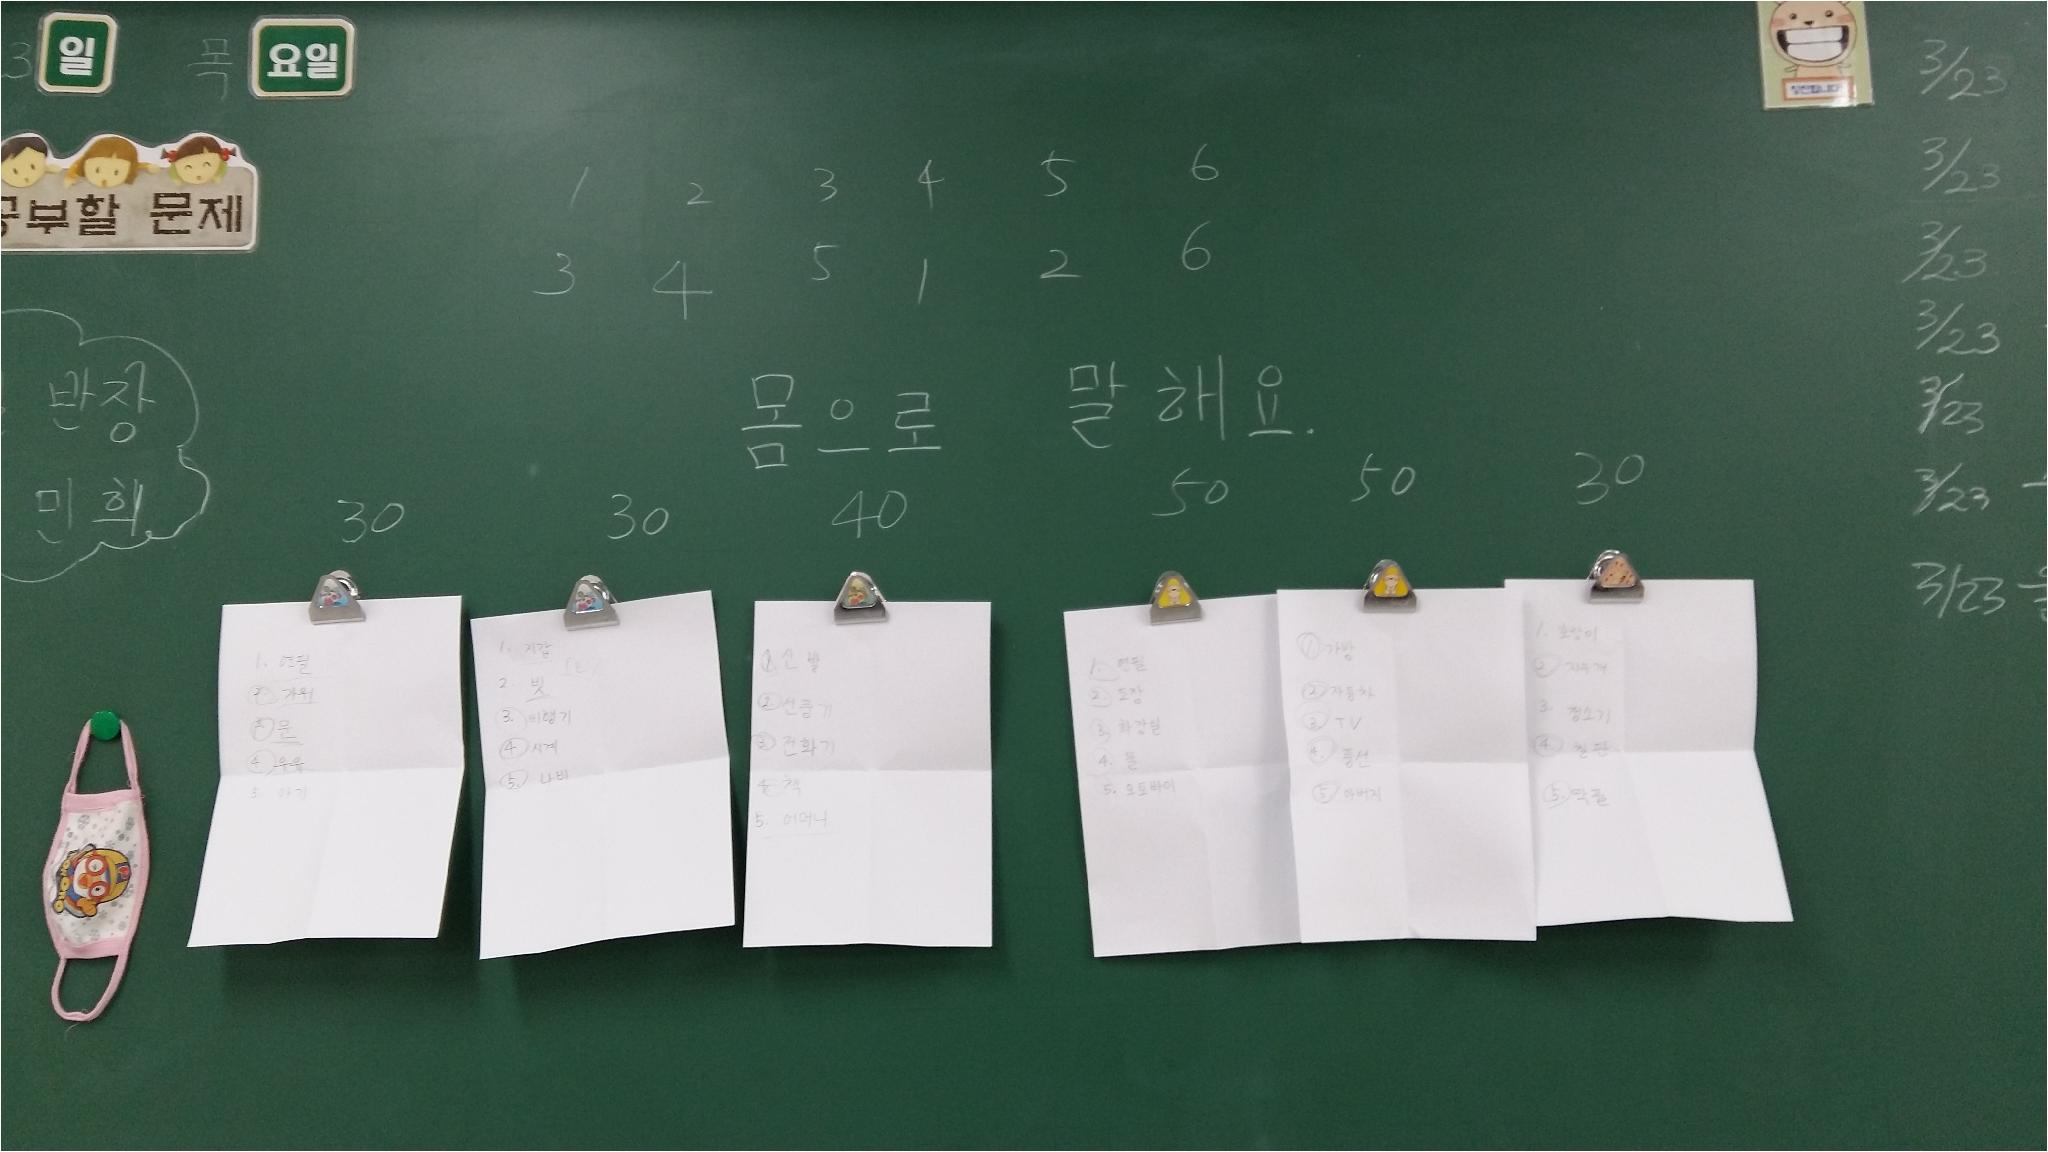 3 일 목 요일
공부할 문제
1 2 3 4 5 6
3 4 5 1 2 6
반장
민희
몸으로 말해요.
30 30 40 50 50 30
1. 연필
2. 가위
3. 문
4. 우유
5. 아기
1. 지갑
2. 빗
3. 비행기
4. 시계
5. 나비
1. 신발
2. 선풍기
3. 전화기
4. 책
5. 어머니
1. 연필
2. 도장
3. 화장실
4. 물
5. 오토바이
1. 가방
2. 자동차
3. TV
4. 풍선
5. 아버지
1. 호랑이
2. 지우개
3. 청소기
4. 칠판
5. 딱풀
3/23
3/23
3/23
3/23
3/23
3/23
3/23